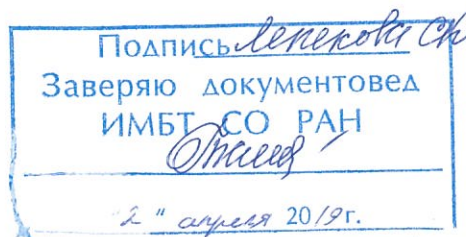 Подпись Лепехова СЮ
Заверяю документовед
ИМБТ СО РАН
2 " апреля 2019г.